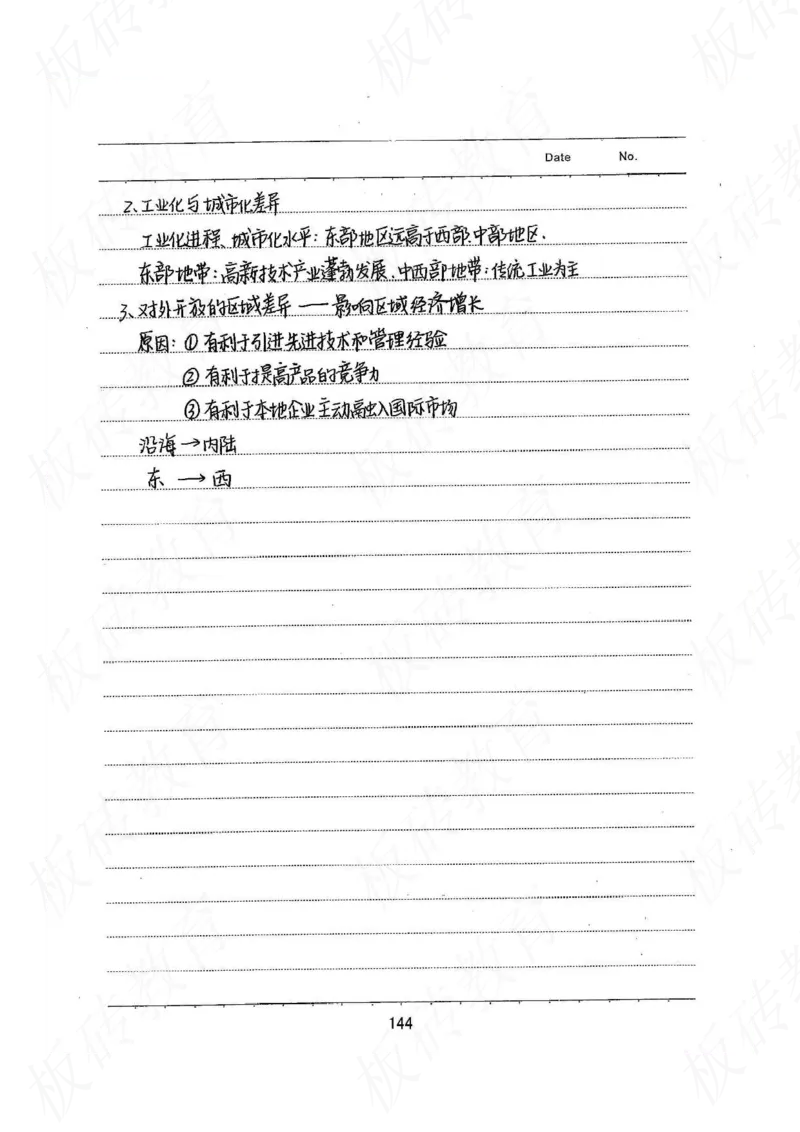 Date No.
2、工业化与城市化差异
工业化进程、城市化水平：东部地区远高于西部、中部地区.
东部地带：高新技术产业蓬勃发展、中西部地带：传统工业为主
3、对外开放的区域差异 —— 影响区域经济增长
原因：① 有利于引进先进技术和管理经验
② 有利于提高产品的竞争力
③ 有利于本地企业主动融入国际市场
沿海 → 内陆
东 → 西
144
板砖教育